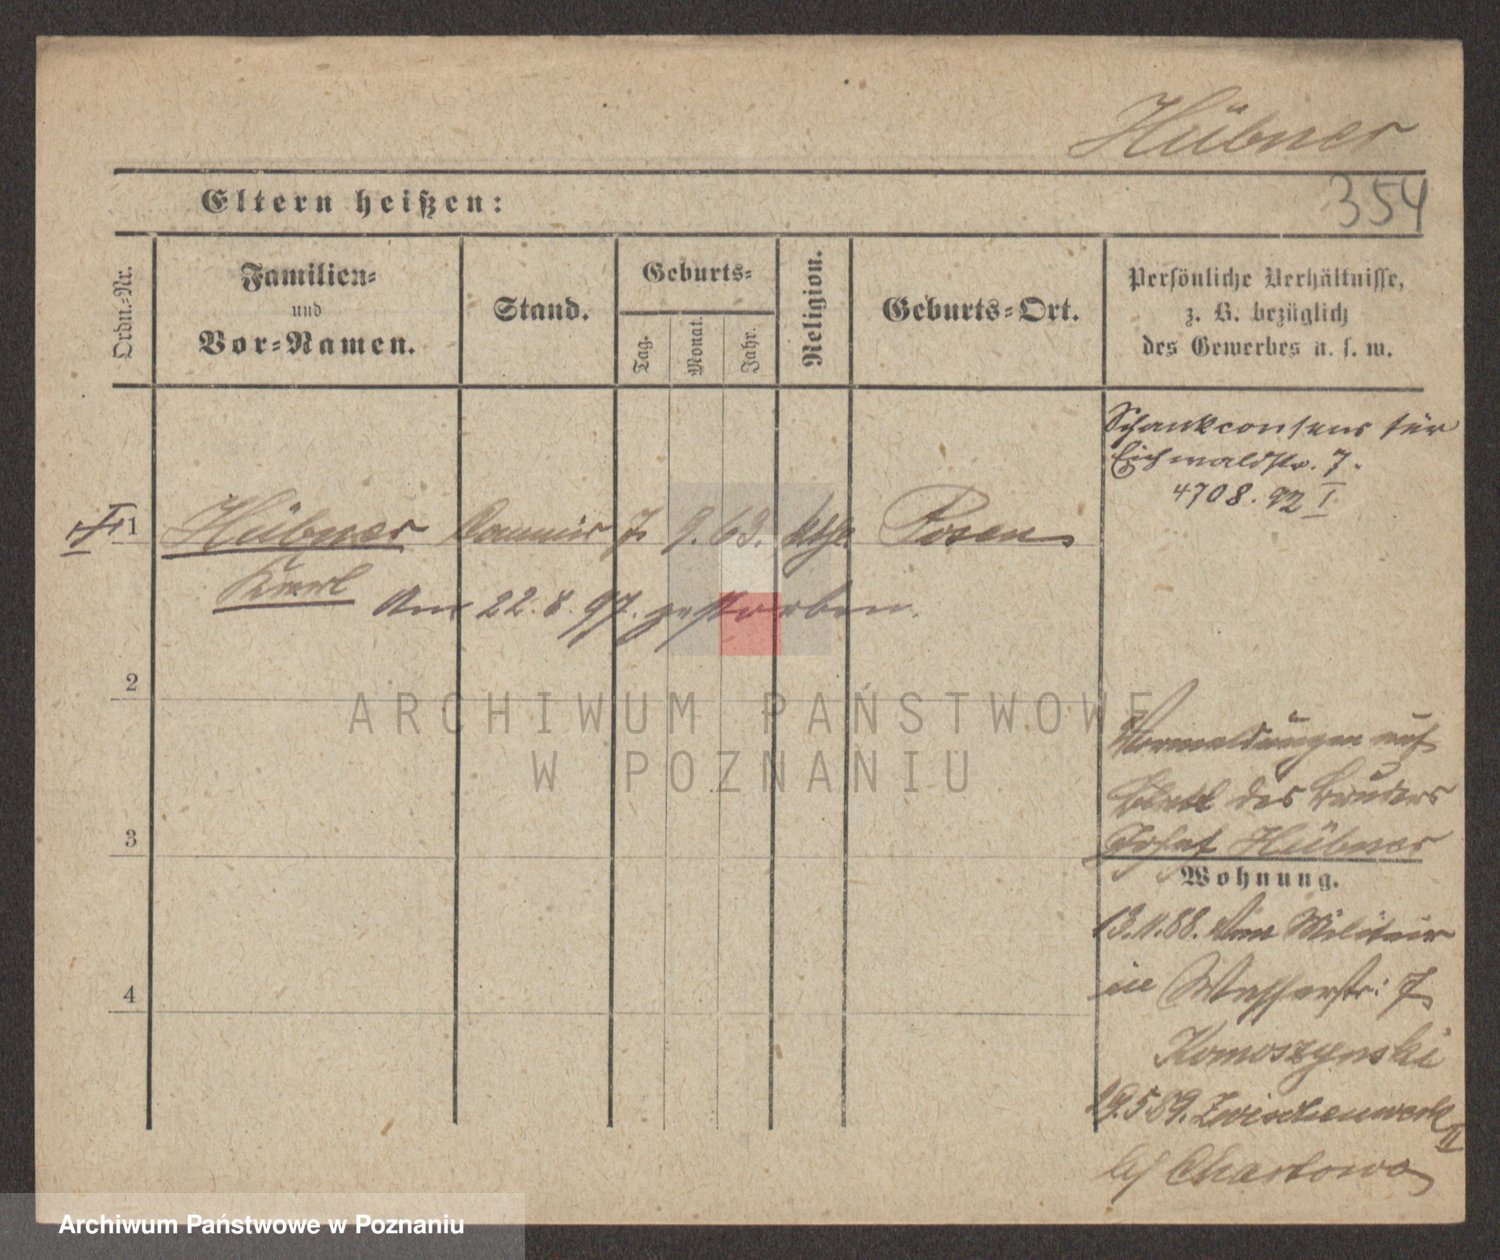 Hübner
354
Eltern heißen:
Ordn.-Nr.
Familien-
und
Vor-Namen.
Stand.
Geburts-
Tag.
Monat.
Jahr.
Religion.
Geburts-Ort.
Persönliche Verhältnisse,
z. B. bezüglich
des Gewerbes u. s. w.
Schankconsens für
Eichwaldstr. 7.
4708. 92 I
1
Hübner Commis 7. 9. 63. kth. Posen
Karl
Am 22. 8. 97. gestorben.
2
Vormeldungen auf
Blatt des Bruders
Josef Hübner
3
Wohnung.
13.11.88. Vom Militair
in Wasserstr: 7
4
Komoszynski
29.5 89. Zwischenwerk
II
bei Chartowo
ARCHIWUM PAŃSTWOWE
W POZNANIU
Archiwum Państwowe w Poznaniu